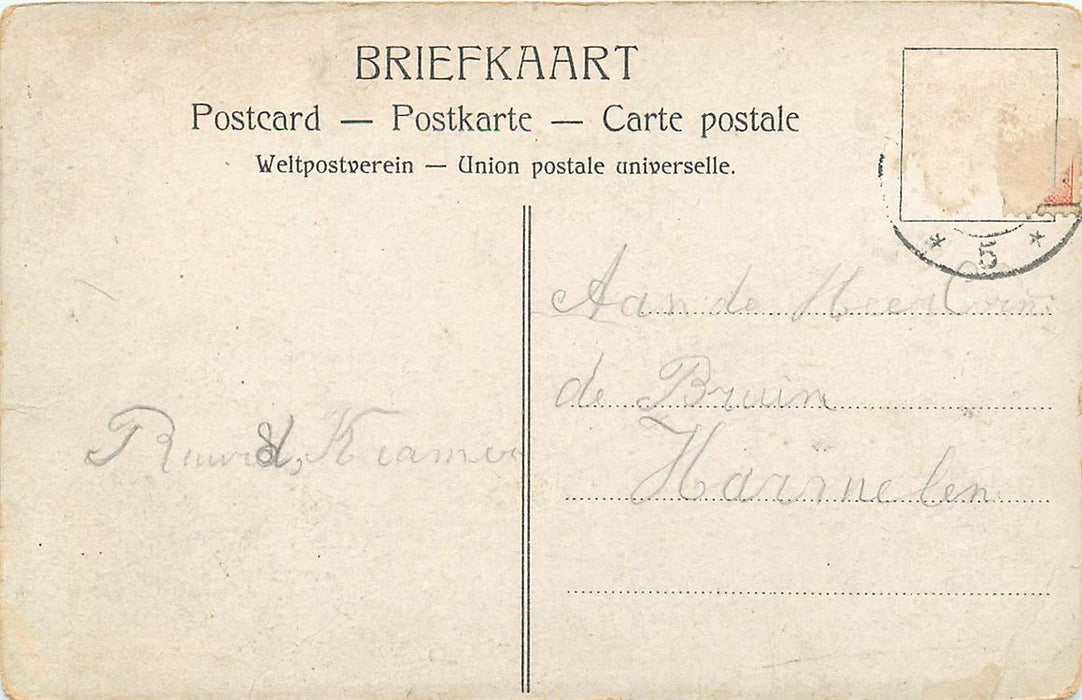 BRIEFKAART
Postcard — Postkarte — Carte postale
Weltpostverein — Union postale universelle.
* 5 *
Aan de Heer Corn:
de Bruin
Harmelen
Kramer